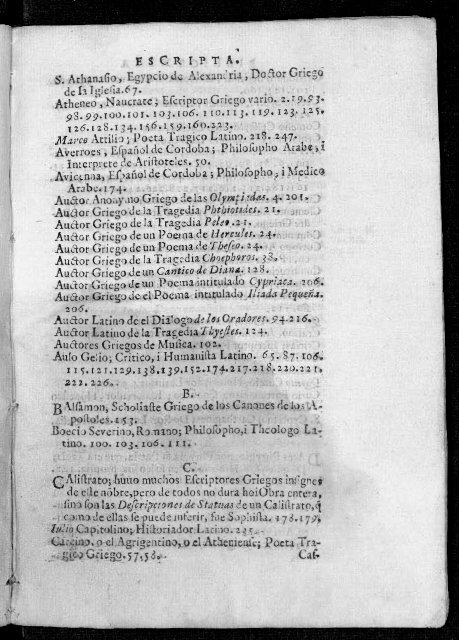 ESCRIPTA.
S. Athanasio, Egypcio de Alexandria, Doctor Griego
de la Iglesia. 67.
Atheneo, Naucrate; Escriptor Griego vario. 2. 19. 93.
98. 99. 100. 101. 103. 106. 110. 113. 119. 123. 125.
126. 128. 134. 156. 159. 160. 223.
Marco Attilio; Poeta Tragico Latino. 218. 247.
Averroes, Español de Cordoba; Philosopho Arabe, i
Interprete de Aristoteles. 50.
Avicenna, Español de Cordoba; Philosopho, i Medico
Arabe. 174.
Auctor Anonymo Griego de las Olympiades. 4. 201.
Auctor Griego de la Tragedia Phthiotides. 21.
Auctor Griego de la Tragedia Peleo. 21.
Auctor Griego de un Poema de Hercules. 24.
Auctor Griego de un Poema de Theseo. 24.
Auctor Griego de la Tragedia Choephoros. 38.
Auctor Griego de un Cantico de Diana. 128.
Auctor Griego de un Poema intitulado Cypriaca. 206.
Auctor Griego de el Poema intitulado Iliada Pequeña.
206.
Auctor Latino de el Dialogo de los Oradores. 94. 216.
Auctor Latino de la Tragedia Thyestes. 124.
Auctores Griegos de Musica. 102.
Aulo Gelio; Critico, i Humanista Latino. 65. 87. 106.
115. 121. 129. 138. 139. 152. 174. 217. 218. 220. 221.
222. 226.
B.
BAlsamon, Scholiaste Griego de los Canones de los A-
postoles. 153.
Boecio Severino, Romano; Philosopho, i Theologo La-
tino. 100. 103. 106. 111.
C.
CAlistrato; huuo muchos Escriptores Griegos insignes
de este nõbre, pero de todos no dura hoi Obra entera,
sino son las Descripciones de Statuas de un Calistrato, q̃
como de ellas se puede inferir, fue Sophista. 178. 179.
Iulio Capitolino; Historiador Latino. 235.
Carcino, o el Agrigentino, o el Atheniense; Poeta Tra-
gico Griego. 57. 58.
Cas.